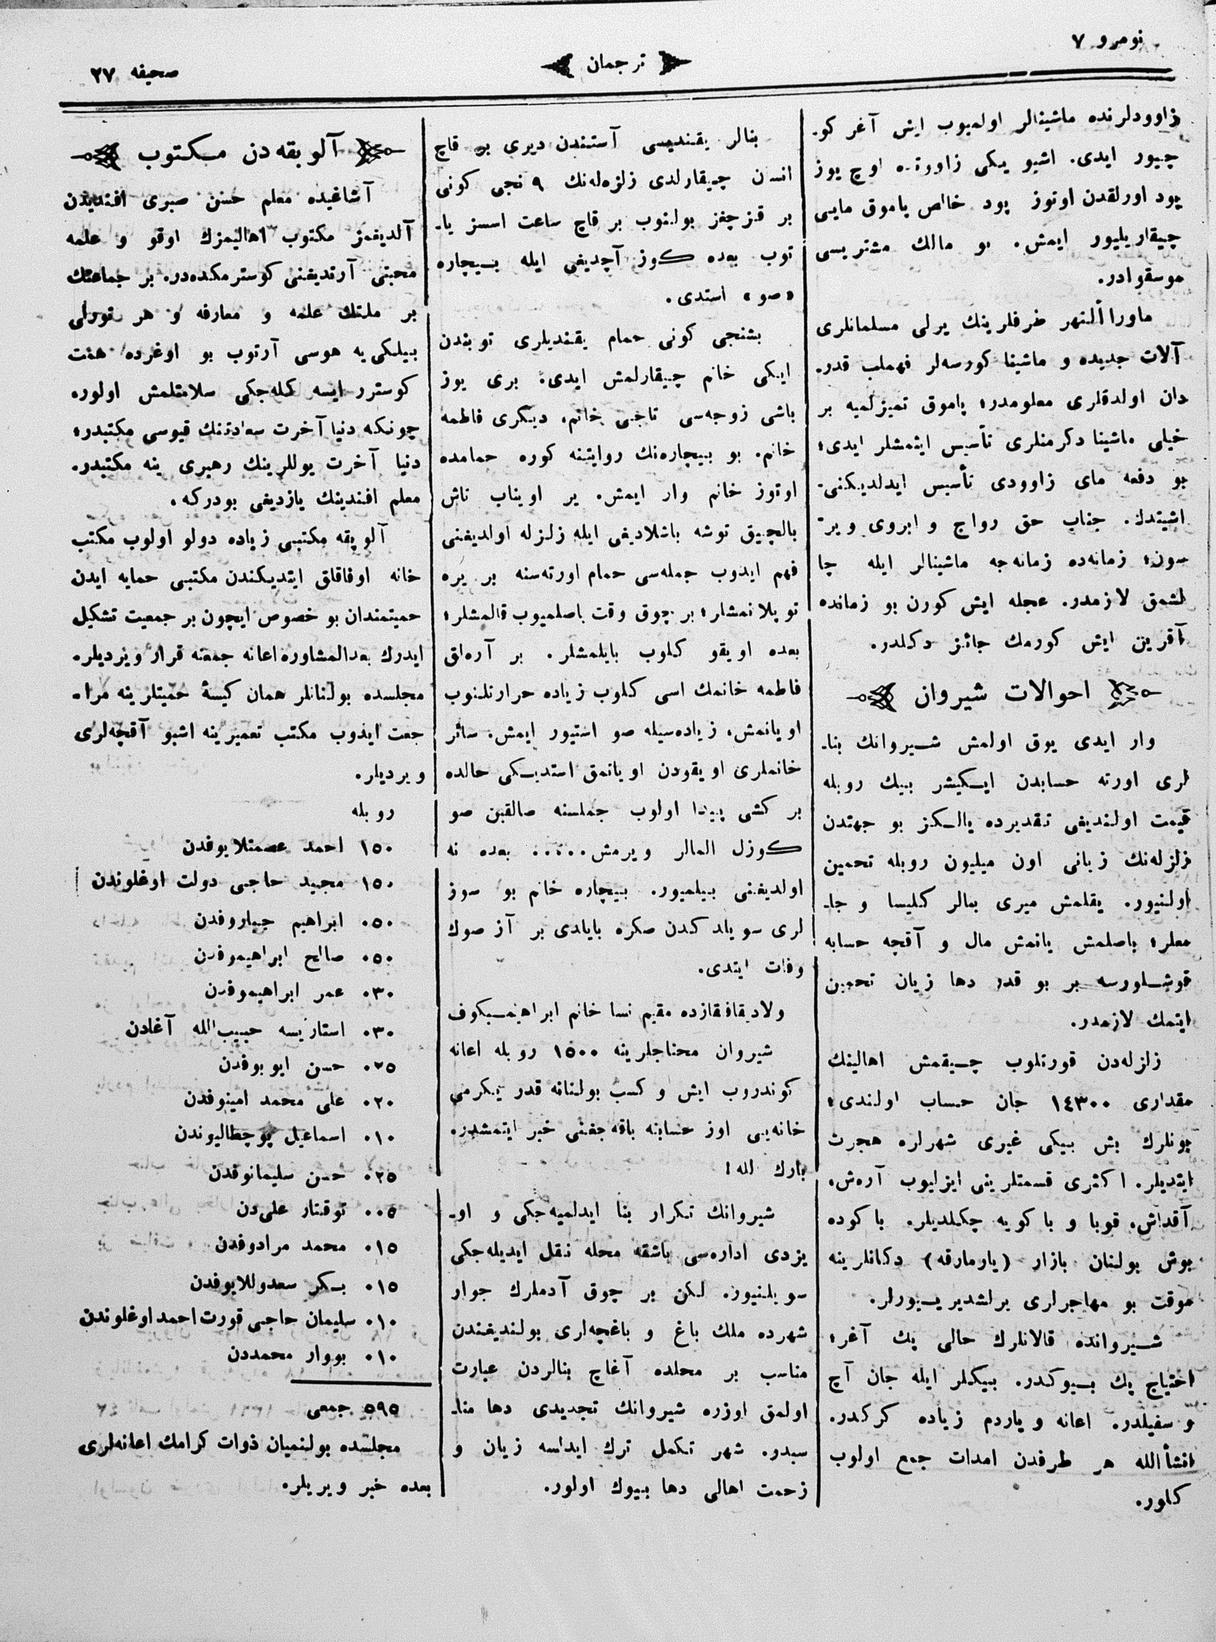 نومرو ۷
ترجمان
صحیفه ۲۷
زاوودلرنده ماشینالر اولمیوب ایش آغر كو-
چیور ایدی. اشبو یكی زاوودده اوچ یوز
پود اورلقدن اوتوز پود خالص پاموق مایی
چیقاریلیور ایمش. بو مالك مشتریسی
موسقوادر.
ماوراألنهر طرفلرینك یرلی مسلمانلری
آلات جدیده و ماشینا كورسه‌لر فهملب قدر-
دان اولدقلری معلومدر؛ پاموق تمیزلمیه بر
خیلی ماشینا دكرمنلری تأسیس ایتمشلر ایدی؛
بو دفعه مای زاوودی تأسیس ایدلدیكنی
اشیتدك. جناب حق رواج و ابروی ویر-
سون؛ زمانه‌ده زمانه‌جه ماشینالر ایله چا
لشمق لازمدر. عجله ایش كورن بو زمانده
آقرین ایش كورمك جائز دكلدر.
احوالات شیروان
وار ایدی یوق اولمش شیروانك بنا-
لری اورته حسابدن ایكیشر بیك روبله
قیمت اولندیغی تقدیرده یالكز بو جهتدن
زلزله‌نك زیانی اون میلیون روبله تحمین
اولنیور. یقلمش میری بنالر كلیسا و جا-
معلر؛ باصلمش یانمش مال و آقچه حسابه
قوشلورسه بر بو قدر دها زیان تحمین
ایتمك لازمدر.
زلزله‌دن قورتلوب چیقمش اهالینك
مقداری ۱٤۳۰۰ جان حساب اولندی؛
بونلرك بش بیكی غیری شهرلره هجرت
ایتدیلر. اكثری قسمتلرینی ایزلیوب آره‌ش،
آقداش، قوبا و باكویه چكلدیلر. باكوده
بوش بولنان بازار (یارمارقه) دكانلرینه
موقت بو مهاجرلری یرلشدیریورلر.
شیروانده قالانلرك حالی پك آغر؛
احتیاج پك بیوكدر. بیكلر ایله جان آچ
و سفیلدر. اعانه و یاردم زیاده كركدر.
انشأالله هر طرفدن امدات جمع اولوب
كلور.
بنالر یقندیسی آستندن دیری بر قاچ
انسان چیقارلدی زلزله‌نك ۹ نجی كونی
بر قزچغز بولنوب بر قاچ ساعت اسسز یا-
توب بعده كوز آچدیغی ایله بیچاره
«صو» استدی.
بشنجی كونی حمام یقندیلری توبندن
ایكی خانم چیقارلمش ایدی؛ بری یوز
باشی زوجه‌سی تاجی خانم، دیكری فاطمه
خانم. بو بیچاره‌نك روایتینه كوره حمامده
اوتوز خانم وار ایمش. یر اویناب تاش
بالچیق توشه باشلادیغی ایله زلزله اولدیغنی
فهم ایدوب جمله‌سی حمام اورته‌سنه بر یره
توپلانمشلر؛ بر چوق وقت باصلمیوب قالمشلر؛
بعده اویقو كلوب بایلمشلر. بر آره‌لق
فاطمه خانمك اسی كلوب زیاده حرارتلنوب
اویانمش، زیاده‌سیله صو استیور ایمش. سائر
خانملری اویقودن اویانمق استدیكی حالده
بر كشی پیدا اولوب جمله‌سنه صالقین صو
كوزل المالر ویرمش..... بعده نه
اولدیغنی بیلمیور. بیچاره خانم بو سوز
لری سویلدكدن صكره بایلدی بر آز صوك
وفات ایتدی.
ولادیقافقازده مقیم نسا خانم ابراهیمبكوف
شیروان محتاجلرینه ۱۵۰۰ روبله اعانه
كوندروب ایش و كسب بولنانه قدر یكرمی
خانه‌یی اوز حسابنه باقه‌جغنی خبر ایتمشدر.
بارك الله!
شیروانك تكرار بنا ایدلمیه‌جكی و او-
یزدی اداره‌سی باشقه محله نقل ایدیله‌جكی
سویلنیور. لكن بر چوق آدملرك جوار
شهرده ملك باغ و باغچه‌لری بولندیغندن
مناسب بر محلده آغاچ بنالردن عبارت
اولمق اوزره شیروانك تجدیدی دها منا-
سبدر. شهر تكمل ترك ایدلسه زیان و
زحمت اهالی دها بیوك اولور.
آلوبقه‌دن مكتوب
آشاغیده معلم حسن صبری افندیدن
آلدیغمز مكتوب اهالیمزك اوقو و علمه
محبتی آرتدیغنی كوسترمكده‌در. بر جماعتك
بر ملتك علمه و معارفه و هر تورلی
بیلكی‌یه هوسی آرتوب بو اوغرده همت
كوسترر ایسه كله‌جكی سلامتلمش اولور.
چونكه دنیا آخرت سعادتنك قپوسی مكتبدر؛
دنیا آخرت یوللرینك رهبری ینه مكتبدر.
معلم افندینك یازدیغی بودركه،
آلوپقه مكتبی زیاده دولو اولوب مكتب
خانه اوفاقلق ایتدیكندن مكتبی حمایه ایدن
حمیتمندان بو خصوص ایچون بر جمعیت تشكیل
ایدرك بعدالمشاوره اعانه جمعنه قرار ویردیلر.
مجلسده بولنانلر همان كیسهٔ حمیتلرینه مرا-
جعت ایدوب مكتب تعمیرینه اشبو آقچه‌لری
ویردیلر.
روبله
۱۵۰ احمد عصمتللایوفدن
۱۵۰ مجید حاجی دولت اوغلوندن
۰۵۰ ابراهیم جباروفدن
۰۵۰ صالح ابراهیموفدن
۰۳۰ عمر ابراهیموفدن
۰۳۰ استاریسه حبیب‌الله آغادن
۰۲۵ حسن ایوبوفدن
۰۲۰ علی محمد امینوفدن
۰۱۰ اسماعیل پوچطالیوندن
۰۲۵ حسن سلیمانوفدن
۰۰۵ توقتار علی‌دن
۰۱۵ محمد مرادوفدن
۰۱۵ بكر سعدوللایوفدن
۰۱۰ سلیمان حاجی قورت احمد اوغلوندن
۰۱۰ بووار محمددن
۵۹۵ جمعی
مجلسده بولنمیان ذوات كرامك اعانه‌لری
بعده خبر ویریلر.